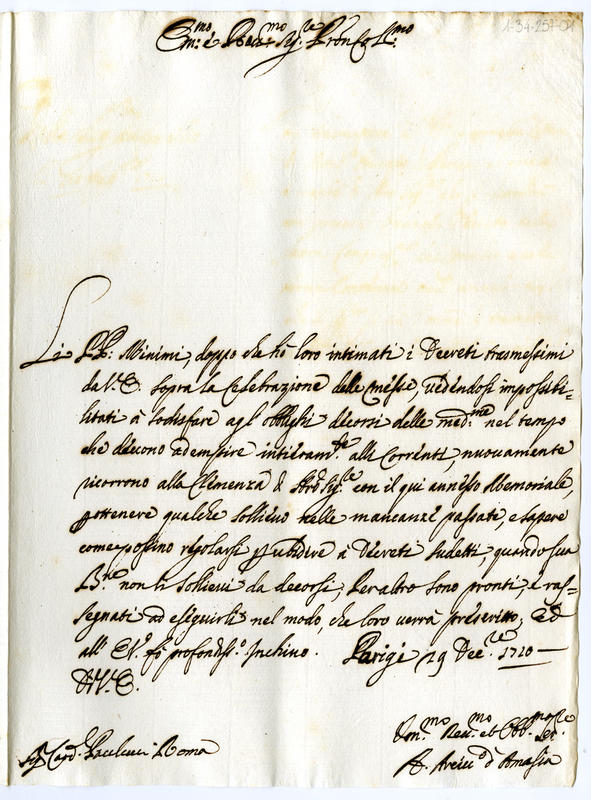 1-34-257-01
Em:mo e Reu:mo Sig:re Pron Col:mo
Li PP. Minimi, doppo che hò loro intimati i Decreti trasmessimi
da V. E. sopra la Celebrazione delle Messe, uedendosi impossibi=
litati à sodisfare agl'obblighi decorsi delle med:me nel tempo
che deuono adempire intieram:te alli Correnti, nuouamente
ricorrono alla Clemenza di Nro Sig:re con il qui annesso Memoriale,
p ottenere qualche sollieuo nelle mancanze passate, e sapere
come possino regolarsi p ubidire à Decreti sudetti, quando sua
B:ne non li sollieui da decorsi; Per altro sono pronti, e ras=
segnati ad eseguirli nel modo, che loro uerrà prescritto; Ed
all' E. V. fò profondiss:o Inchino. Parigi 29 Dec:re 1710
D. V. E.
Sig. Card. Paulucci Roma
Um:mo Deu:mo et Obb:mo Ser:re
A. Arciu:o d'Amasia